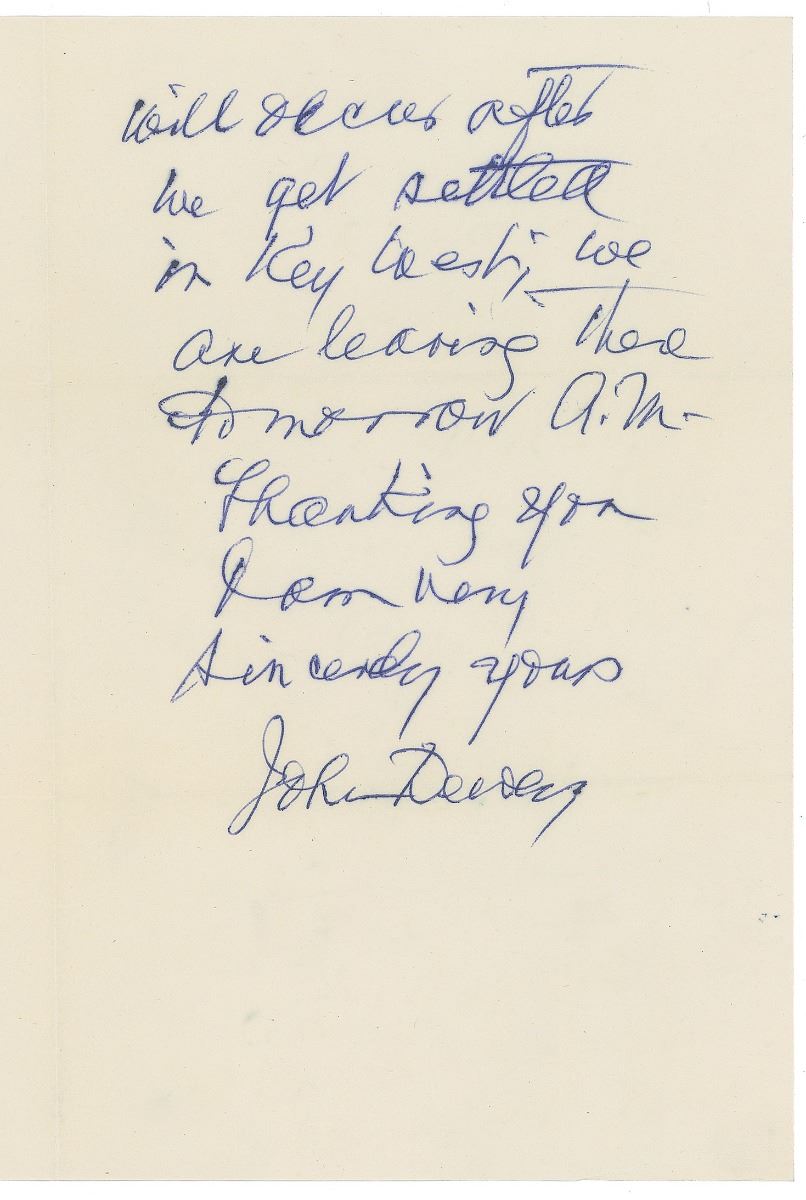 will occur after
we get settled
in Key West; we
are leaving there
tomorrow A.M.
Thanking you
I am very
sincerely yours
John Dewey